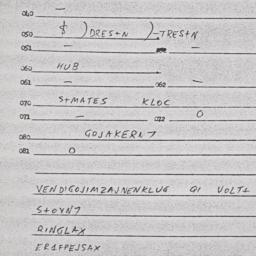 040 —
050 $ )DRES+N )-TRES+N
051 — —
060 HUB
061 — 062 —
070 S+MATES KLOC
071 — 072 O
080 GOJAKERN7
081 O
VENDIGOJIMZAJNENKLUG QI VOLT+
S+OYN7
RINGLAX
ERAFPEJSAX